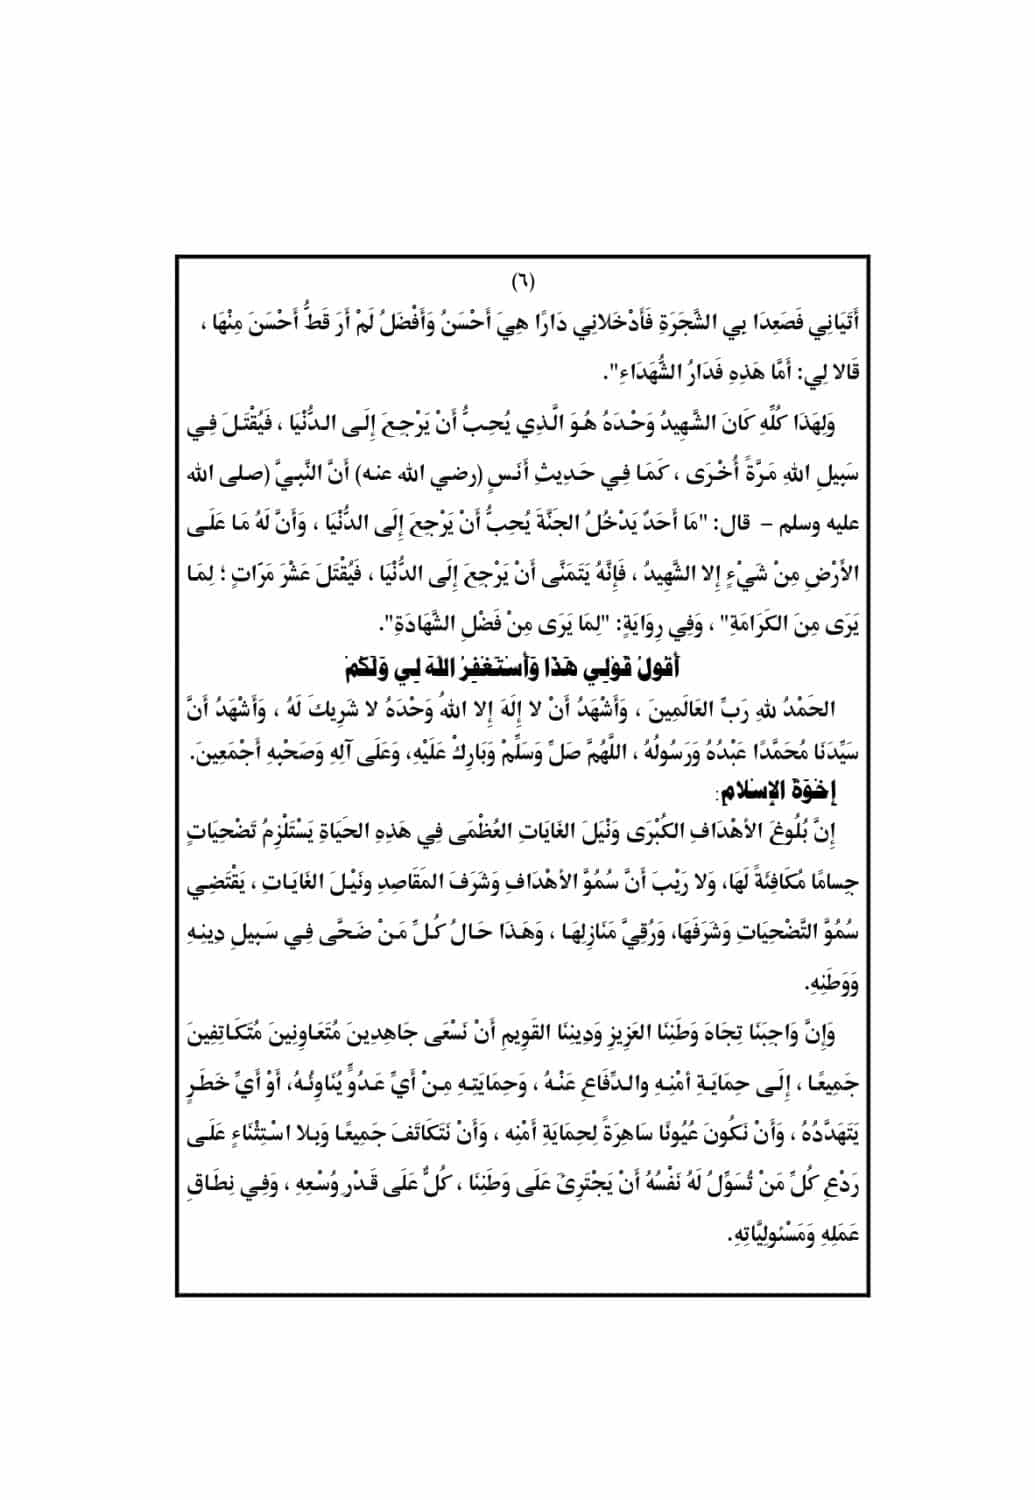 (٦)
أَتَيَانِي فَصَعِدَا بِي الشَّجَرَةِ فَأَدْخَلانِي دَارًا هِيَ أَحْسَنُ وَأَفْضَلُ لَمْ أَرَ قَطُّ أَحْسَنَ مِنْهَا ،
قَالا لِي: أَمَّا هَذِهِ فَدَارُ الشُّهَدَاءِ".
وَلِهَذَا كُلِّهِ كَانَ الشَّهِيدُ وَحْدَهُ هُوَ الَّذِي يُحِبُّ أَنْ يَرْجِعَ إِلَى الدُّنْيَا ، فَيُقْتَلَ فِي
سَبِيلِ اللهِ مَرَّةً أُخْرَى ، كَمَا فِي حَدِيثِ أَنَسٍ (رضي الله عنه) أَنَّ النَّبِيَّ (صلى الله
عليه وسلم – قال: "مَا أَحَدٌ يَدْخُلُ الجَنَّةَ يُحِبُّ أَنْ يَرْجِعَ إِلَى الدُّنْيَا ، وَأَنَّ لَهُ مَا عَلَى
الأَرْضِ مِنْ شَيْءٍ إِلا الشَّهِيدُ ، فَإِنَّهُ يَتَمَنَّى أَنْ يَرْجِعَ إِلَى الدُّنْيَا ، فَيُقْتَلَ عَشْرَ مَرَّاتٍ ؛ لِمَا
يَرَى مِنَ الكَرَامَةِ" ، وَفِي رِوَايَةٍ: "لِمَا يَرَى مِنْ فَضْلِ الشَّهَادَةِ".
أَقُولُ قَوْلِي هَذَا وَأَسْتَغْفِرُ اللَّهَ لِي وَلَكُمْ
الحَمْدُ للهِ رَبِّ العَالَمِينَ ، وَأَشْهَدُ أَنْ لا إِلَهَ إِلا اللهُ وَحْدَهُ لا شَرِيكَ لَهُ ، وَأَشْهَدُ أَنَّ
سَيِّدَنَا مُحَمَّدًا عَبْدُهُ وَرَسُولُهُ ، اللَّهُمَّ صَلِّ وَسَلِّمْ وَبَارِكْ عَلَيْهِ، وَعَلَى آلِهِ وَصَحْبِهِ أَجْمَعِينَ.
إِخْوَةَ الإِسْلام:
إِنَّ بُلُوغَ الأهْدَافِ الكُبْرَى وَنَيْلَ الغَايَاتِ العُظْمَى فِي هَذِهِ الحَيَاةِ يَسْتَلْزِمُ تَضْحِيَاتٍ
جِسامًا مُكَافِئَةً لَهَا، وَلا رَيْبَ أَنَّ سُمُوَّ الأهْدَافِ وَشَرَفَ المَقَاصِدِ ونَيْلَ الغَايَاتِ ، يَقْتَضِي
سُمُوَّ التَّضْحِيَاتِ وَشَرَفَهَا، وَرُقِيَّ مَنَازِلِهَا ، وَهَذَا حَالُ كُلِّ مَنْ ضَحَّى فِي سَبِيلِ دِينِهِ
وَوَطَنِهِ.
وَإِنَّ وَاجِبَنَا تِجَاهَ وَطَنِنَا العَزِيزِ وَدِينِنَا القَوِيمِ أَنْ نَسْعَى جَاهِدِينَ مُتَعَاوِنِينَ مُتَكَاتِفِينَ
جَمِيعًا ، إِلَى حِمَايَةِ أَمْنِهِ والدِّفَاعِ عَنْهُ ، وَحِمَايَتِهِ مِنْ أَيِّ عَدُوٍّ يُنَاوِئُهُ، أَوْ أَيِّ خَطَرٍ
يَتَهَدَّدُهُ ، وَأَنْ نَكُونَ عُيُونًا سَاهِرَةً لِحِمَايَةِ أَمْنِه ، وَأَنْ نَتَكَاتَفَ جَمِيعًا وَبِلا اسْتِثْنَاءٍ عَلَى
رَدْعِ كُلِّ مَنْ تُسَوِّلُ لَهُ نَفْسُهُ أَنْ يَجْتَرِئَ عَلَى وَطَنِنَا ، كُلٌّ عَلَى قَدْرِ وُسْعِهِ ، وَفِي نِطَاقِ
عَمَلِهِ وَمَسْئولِيَّاتِهِ.